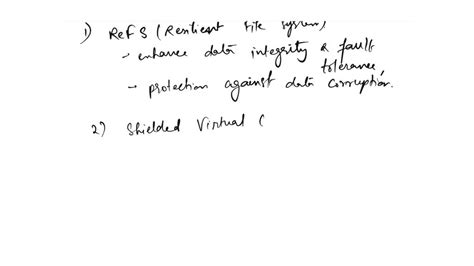 1) ReFS (Resilient File System)
- enhance data integrity & fault
tolerance,
- protection against data corruption.
2) Shielded Virtual (